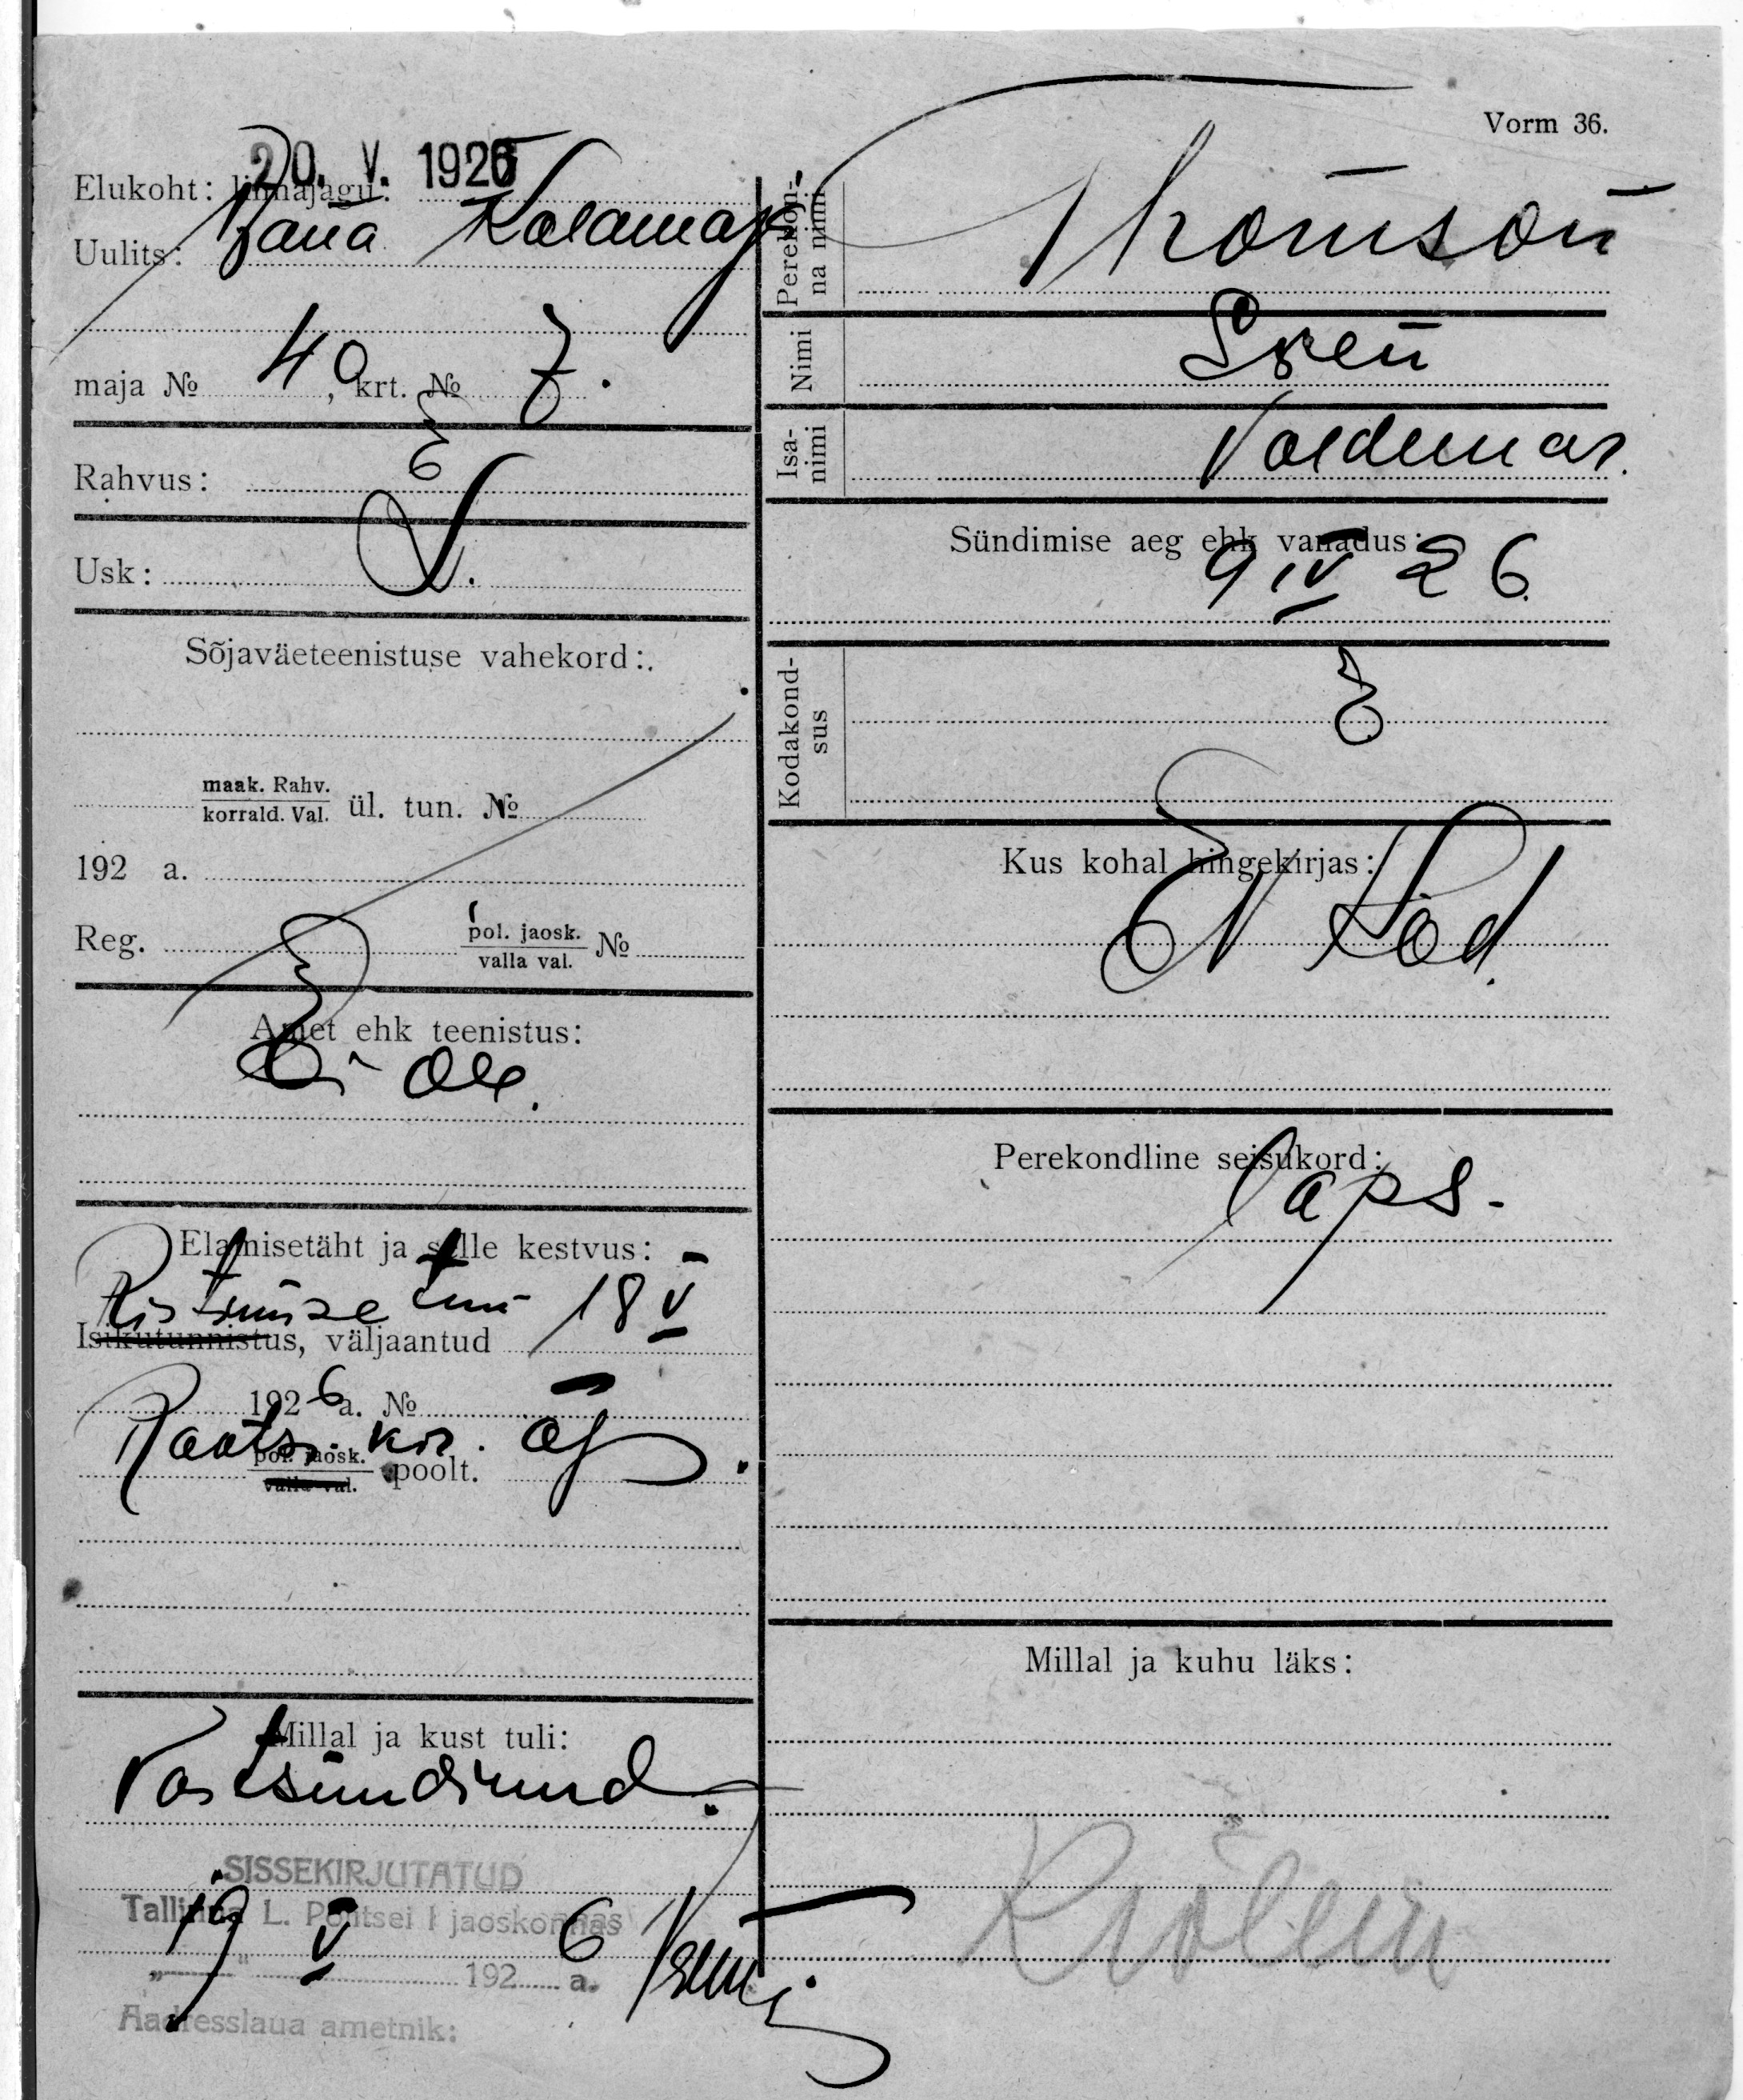 Vorm 36.
20. V. 1926
Elukoht: linnajagu:
Uulits: Vana Kalamaja
maja № 40, krt. № 7.
Rahvus: E
Usk: L.
Sõjaväeteenistuse vahekord:
maak. Rahv.
korrald. Val. ül. tun. №
192 a.
Reg. pol. jaosk.
valla val. №
Amet ehk teenistus:
Ei ole.
Elamisetäht ja selle kestvus:
Ristimise tun 18 V
Isikutunnistus, väljaantud
1926 a. №
Raats. kir.
pol. jaosk.
valla val. poolt.
Millal ja kust tuli:
Vastsündinud.
SISSEKIRJUTATUD
Tallinna L. Politsei I jaoskonnas
19 V 1926 a.
Aadresslaua ametnik:
Perekonna nimi Thomson
Nimi Sven
Isanimi Voldemar.
Sündimise aeg ehk vanadus:
9 IV 26.
Kodakondsus E
Kus kohal hingekirjas:
E V Kod.
Perekondline seisukord:
laps.
Millal ja kuhu läks: